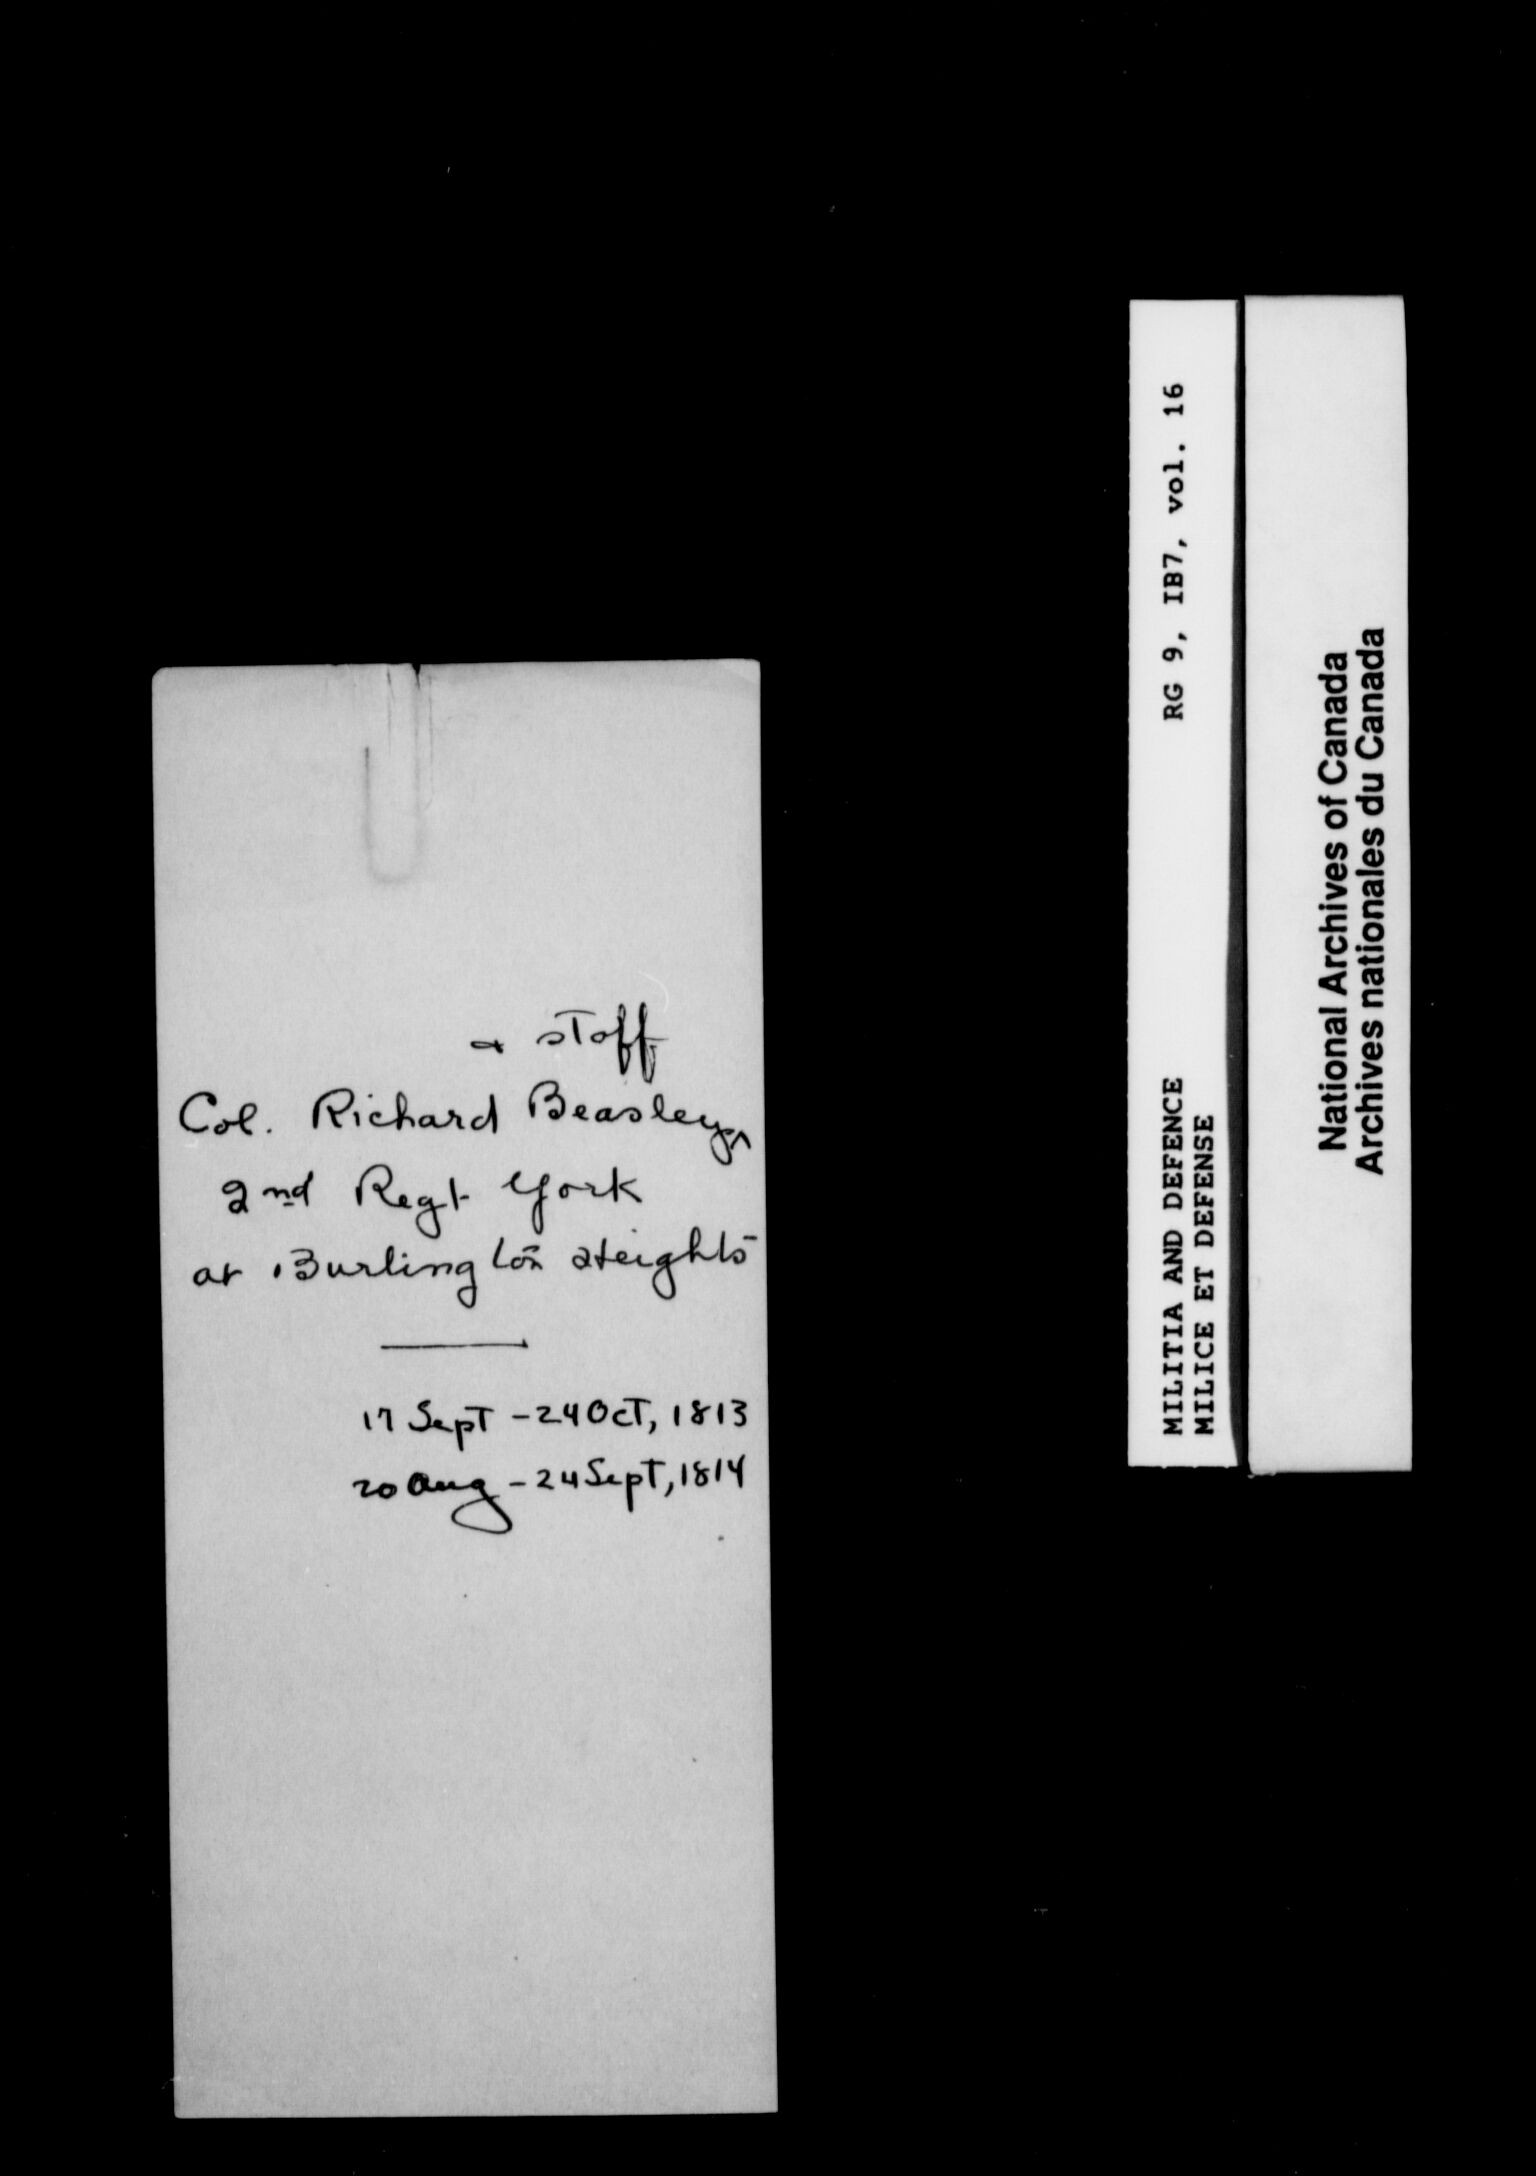 & staff
Col. Richard Beasley ^
2nd Regt York
at Burlington Heights
17 Sept - 24 Oct, 1813
20 Aug - 24 Sept, 1814
MILITIA AND DEFENCE RG 9, IB7, vol. 16
MILICE ET DEFENSE
National Archives of Canada
Archives nationales du Canada